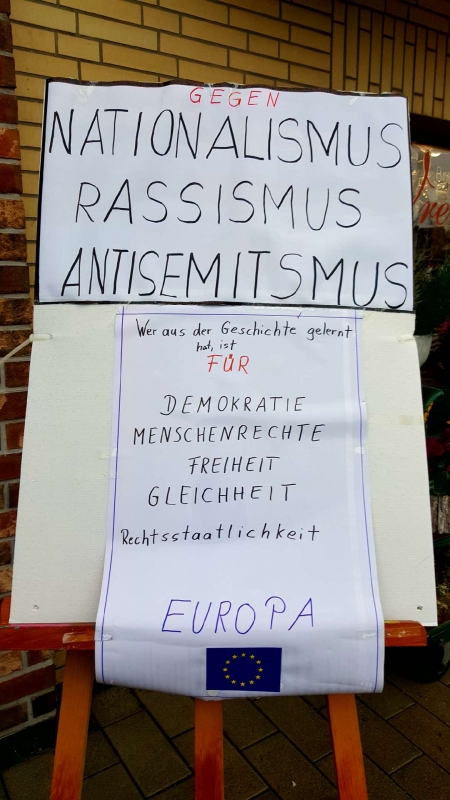 GEGEN
NATIONALISMUS
RASSISMUS
ANTISEMITSMUS
Wer aus der Geschichte gelernt
hat, ist
FÜR
DEMOKRATIE
MENSCHENRECHTE
FREIHEIT
GLEICHHEIT
Rechtsstaatlichkeit
EUROPA